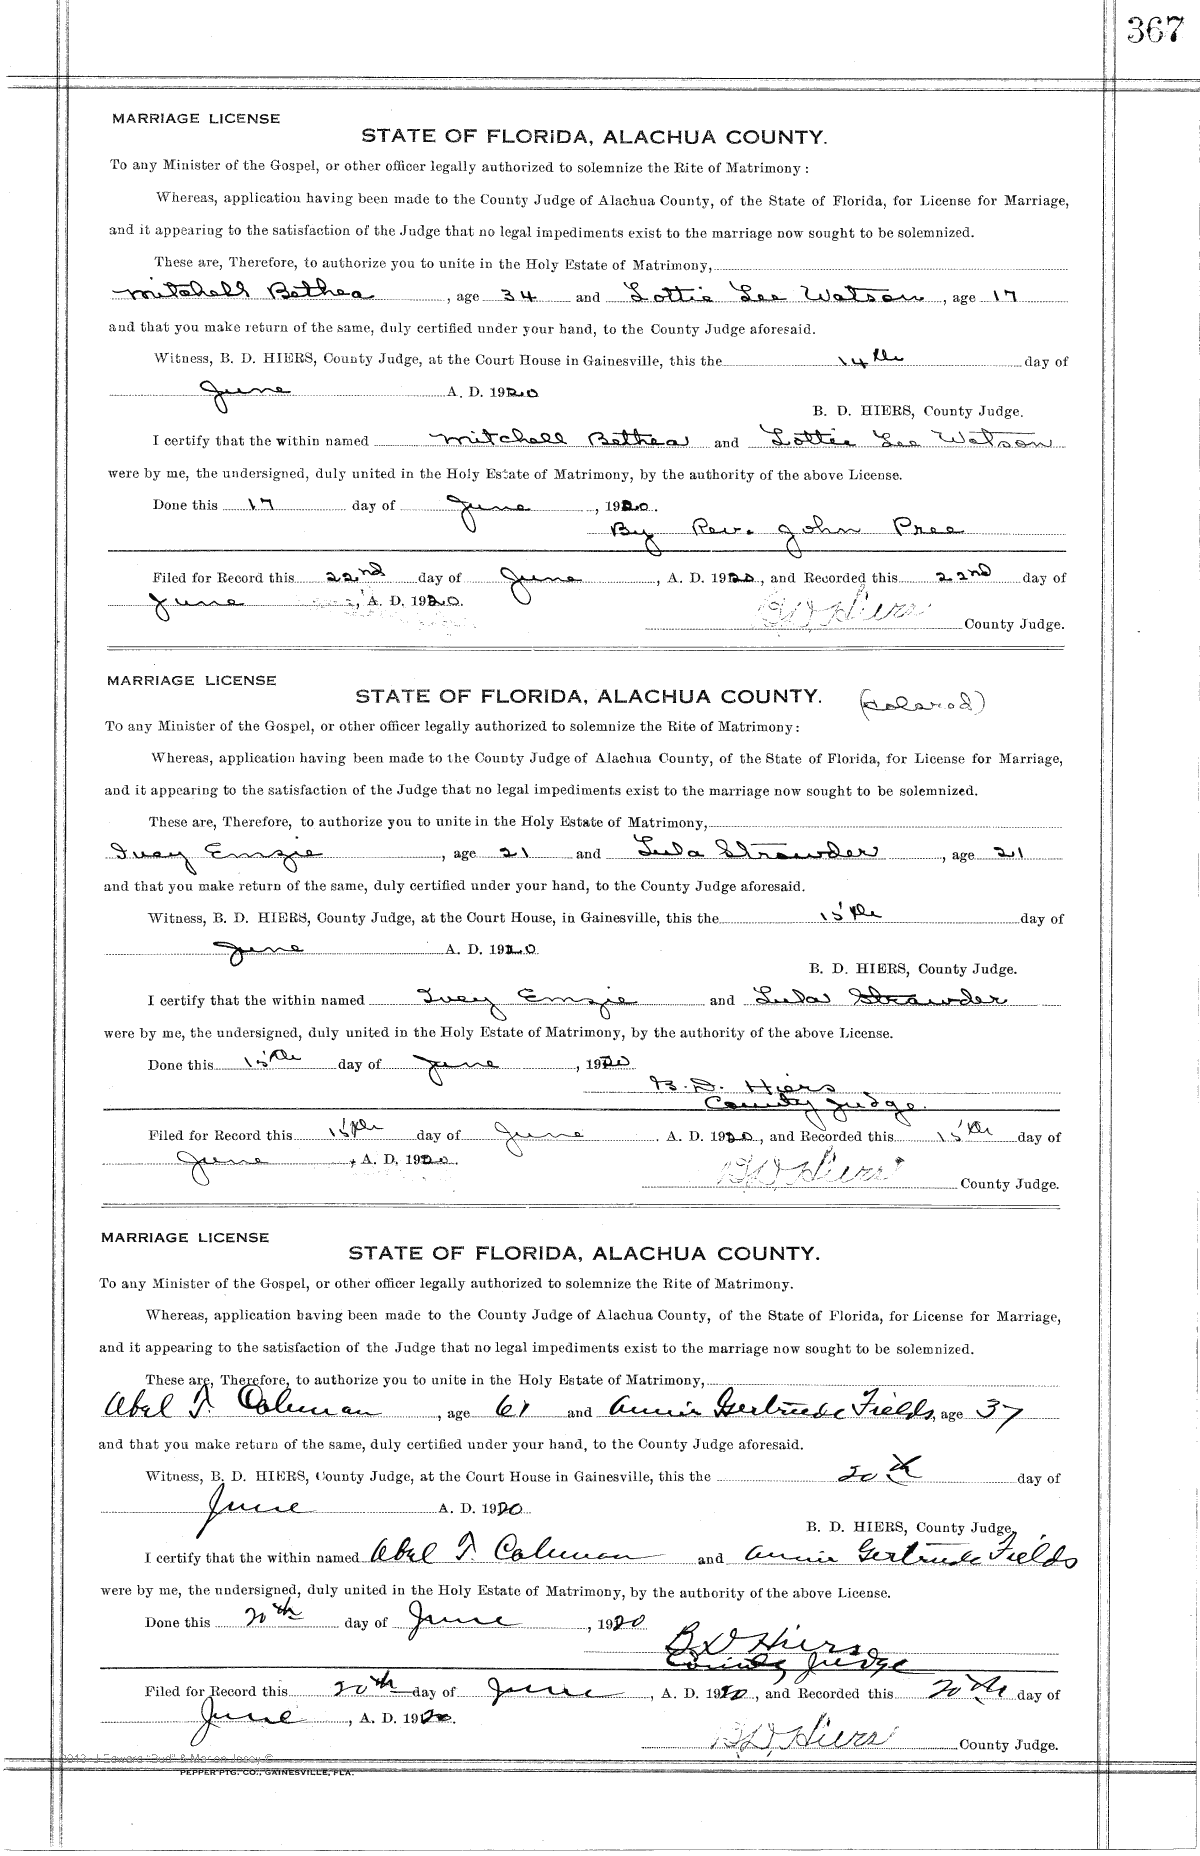 367
MARRIAGE LICENSE
STATE OF FLORIDA, ALACHUA COUNTY.
To any Minister of the Gospel, or other officer legally authorized to solemnize the Rite of Matrimony :
Whereas, application having been made to the County Judge of Alachua County, of the State of Florida, for License for Marriage,
and it appearing to the satisfaction of the Judge that no legal impediments exist to the marriage now sought to be solemnized.
These are, Therefore, to authorize you to unite in the Holy Estate of Matrimony,
Mitchell Bethea, age 34 and Lottie Lee Watson, age 17
and that you make return of the same, duly certified under your hand, to the County Judge aforesaid.
Witness, B. D. HIERS, County Judge, at the Court House in Gainesville, this the 14th day of
June A. D. 1920
B. D. HIERS, County Judge.
I certify that the within named Mitchell Bethea and Lottie Lee Watson
were by me, the undersigned, duly united in the Holy Estate of Matrimony, by the authority of the above License.
Done this 17 day of June, 1920.
By Rev. John Pree
Filed for Record this 22nd day of June, A. D. 1920, and Recorded this 22nd day of
June, A. D. 1920.
B D Hiers
County Judge.
MARRIAGE LICENSE
STATE OF FLORIDA, ALACHUA COUNTY. (Colored)
To any Minister of the Gospel, or other officer legally authorized to solemnize the Rite of Matrimony:
Whereas, application having been made to the County Judge of Alachua County, of the State of Florida, for License for Marriage,
and it appearing to the satisfaction of the Judge that no legal impediments exist to the marriage now sought to be solemnized.
These are, Therefore, to authorize you to unite in the Holy Estate of Matrimony,
Ivey Emzie, age 21 and Lula Strawder, age 21
and that you make return of the same, duly certified under your hand, to the County Judge aforesaid.
Witness, B. D. HIERS, County Judge, at the Court House, in Gainesville, this the 15th day of
June A. D. 1920
B. D. HIERS, County Judge.
I certify that the within named Ivey Emzie and Lula Strawder
were by me, the undersigned, duly united in the Holy Estate of Matrimony, by the authority of the above License.
Done this 15th day of June, 1920
B. D. Hiers
County Judge.
Filed for Record this 15th day of June. A. D. 1920, and Recorded this 15th day of
June, A. D. 1920.
B D Hiers
County Judge.
MARRIAGE LICENSE
STATE OF FLORIDA, ALACHUA COUNTY.
To any Minister of the Gospel, or other officer legally authorized to solemnize the Rite of Matrimony.
Whereas, application having been made to the County Judge of Alachua County, of the State of Florida, for License for Marriage,
and it appearing to the satisfaction of the Judge that no legal impediments exist to the marriage now sought to be solemnized.
These are, Therefore, to authorize you to unite in the Holy Estate of Matrimony,
Abel T. Coleman, age 61 and Annie Gertrude Fields, age 37
and that you make return of the same, duly certified under your hand, to the County Judge aforesaid.
Witness, B. D. HIERS, County Judge, at the Court House in Gainesville, this the 20th day of
June A. D. 1920
B. D. HIERS, County Judge.
I certify that the within named Abel T. Coleman and Annie Gertrude Fields
were by me, the undersigned, duly united in the Holy Estate of Matrimony, by the authority of the above License.
Done this 20th day of June, 1920
B D Hiers
County Judge
Filed for Record this 20th day of June, A. D. 1920, and Recorded this 20th day of
June, A. D. 1920.
B D Hiers
County Judge.
PEPPER PTG. CO., GAINESVILLE, FLA.